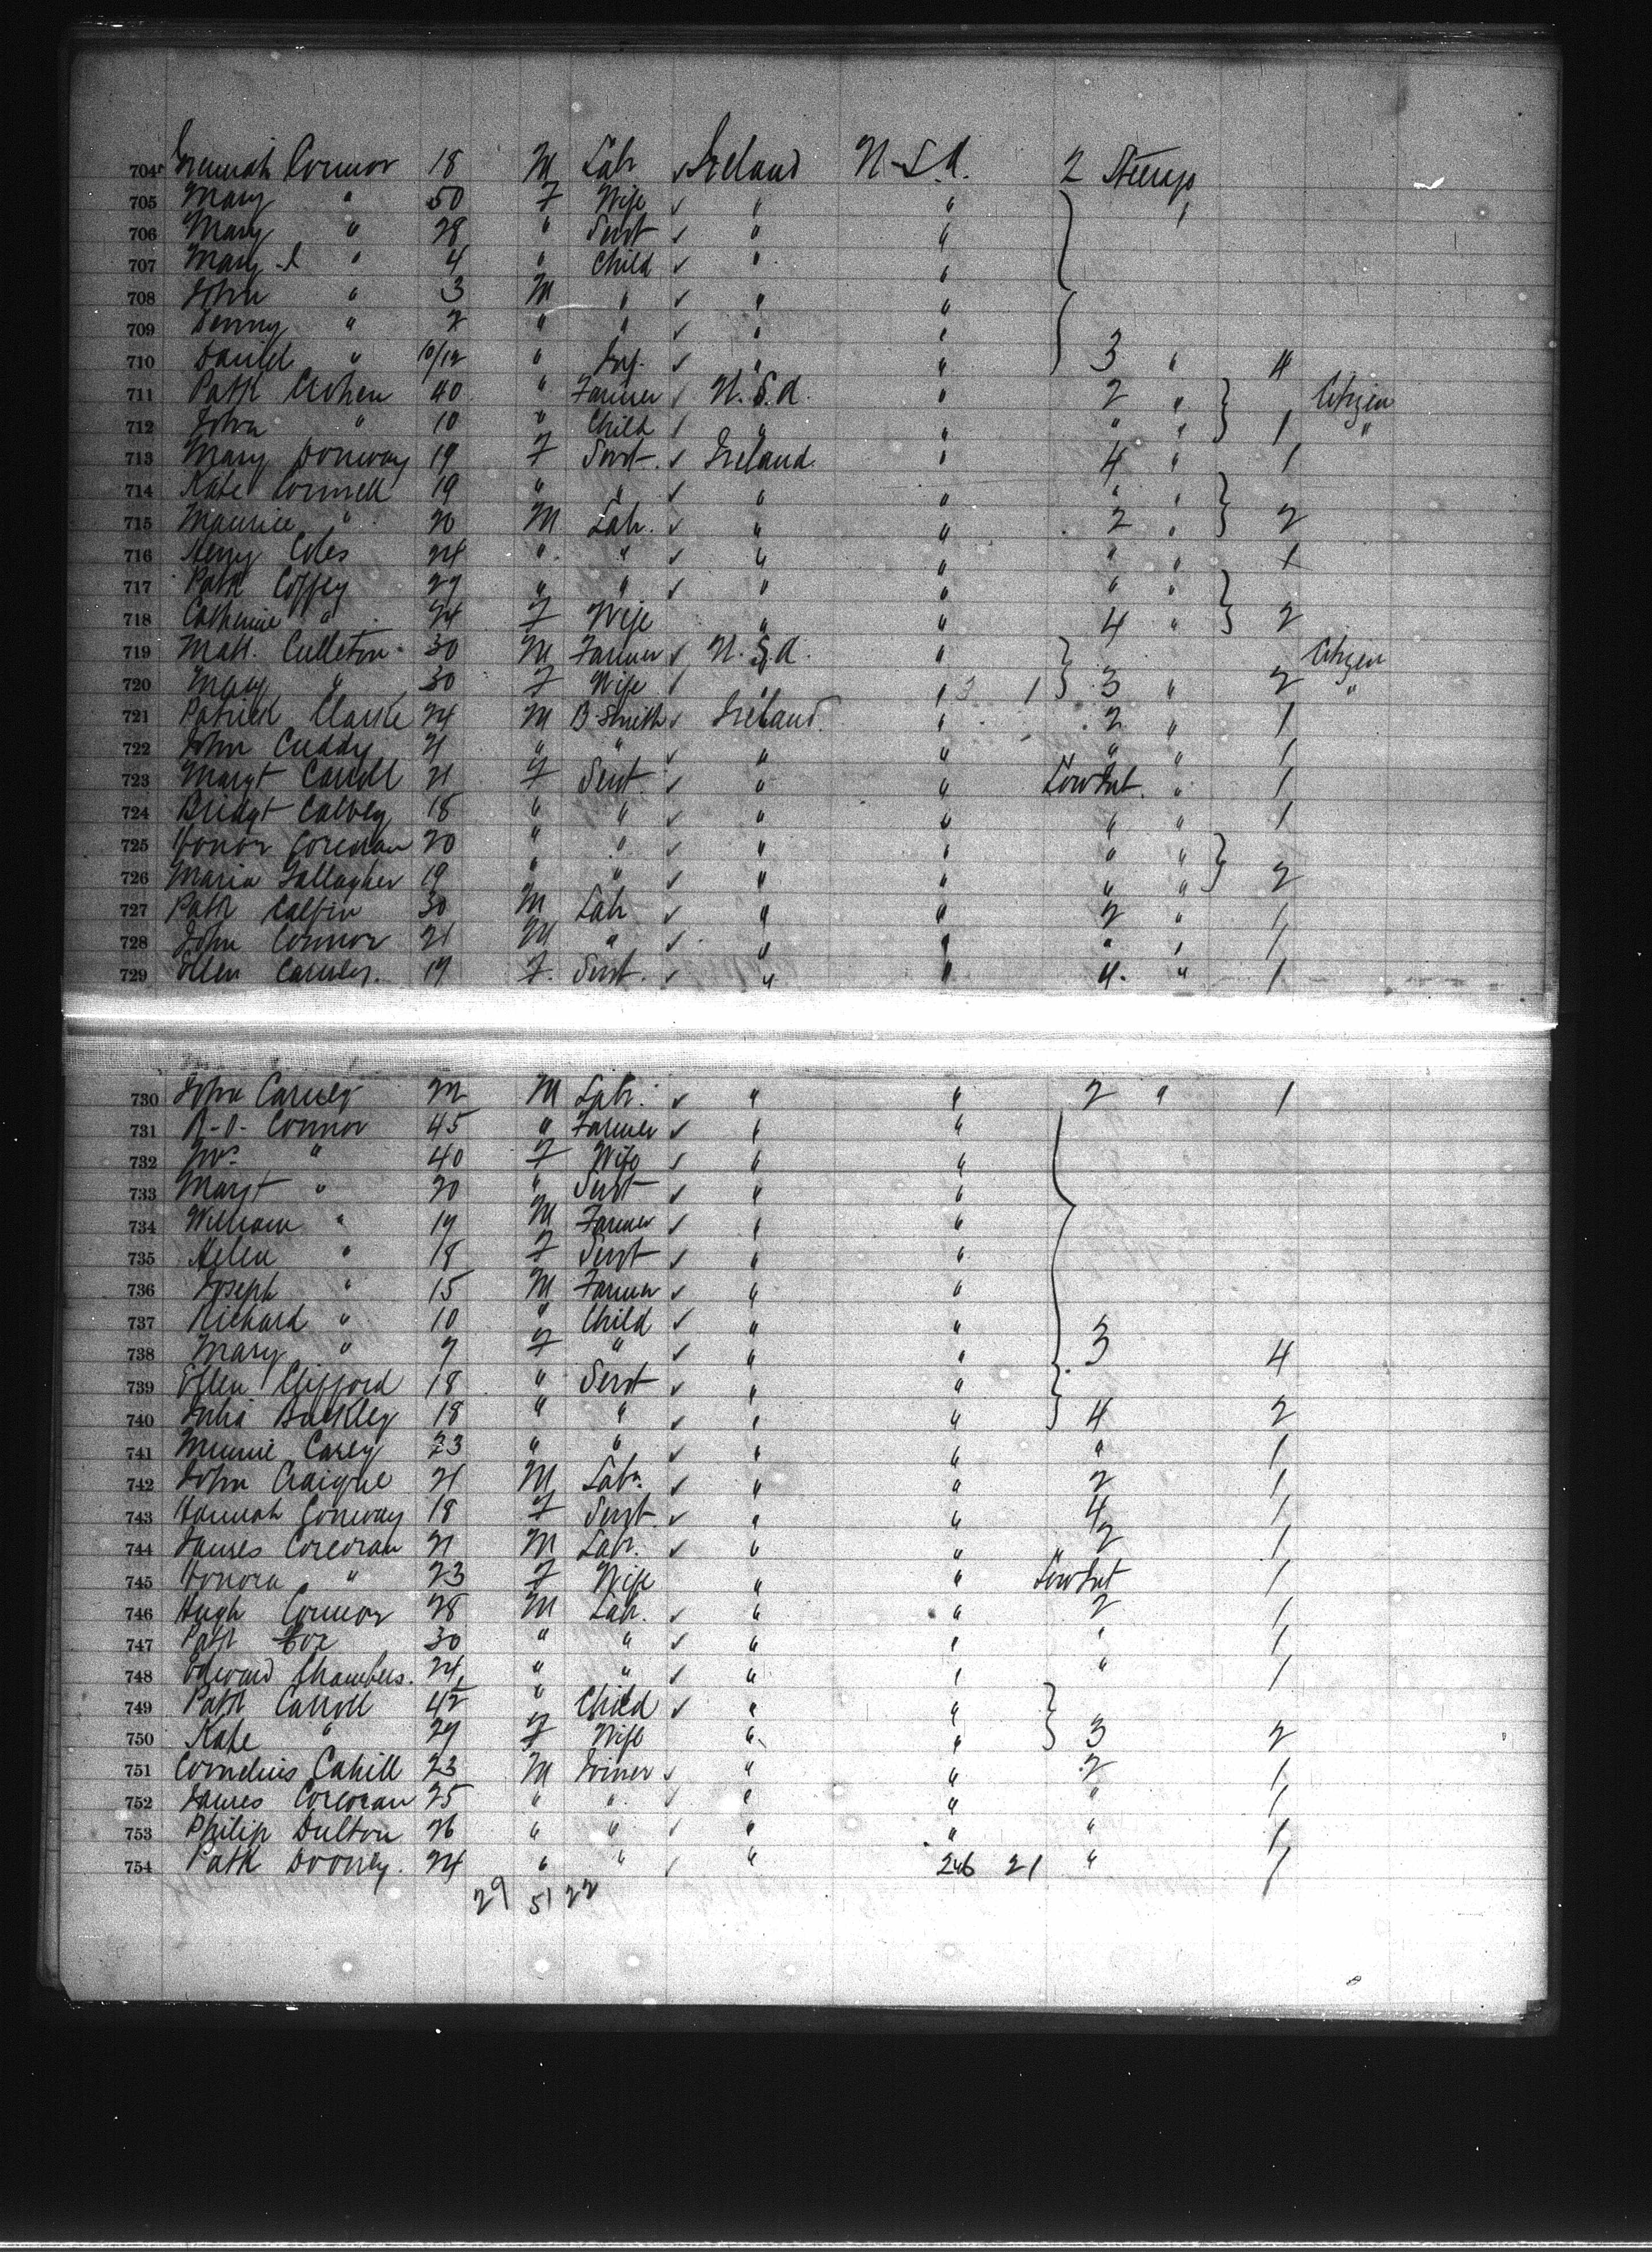 704 Connor 18 M Lab ✓ Ireland U.S.A. 2 Steerage
705 Mary " 50 F Wife ✓ " " 1
706 Mary " 28 " Servt ✓ " "
707 Mary " 4 " Child ✓ " "
708 John " 3 M " ✓ " "
709 Denny " 2 " " ✓ " "
710 Daniel " 10/12 " Inf. ✓ " " 3 " 4
711 Patk 40 " Farmer ✓ U.S.A. " 2 " Citizen
712 John " 10 " Child ✓ " " " " 1 "
713 Mary Conway 19 F Servt. ✓ Ireland " 4 " 1
714 Kate Connell 19 " " ✓ " " " "
715 Maurice " 20 M Lab. ✓ " " 2 " 2
716 Henry Coles 24 " " ✓ " " " " 1
717 Patk Coffey 27 " " ✓ " " " "
718 Catherine " 24 F Wife " " 4 " 2
719 Matt. Culleton 30 M Farmer ✓ U.S.A. " Citizen
720 Mary " 30 F Wife ✓ " " 3 1 3 " 2 "
721 Patrick Clarke 24 M B. Smith ✓ Ireland " 2 " 1
722 John Cuddy 21 " " ✓ " " " " 1
723 Margt Carroll 21 F Servt. ✓ " " " 1
724 Bridgt Calvey 18 " " ✓ " " " " 1
725 Honor Corcoran 20 " " ✓ " " " "
726 Maria Gallagher 19 " " ✓ " " " " 2
727 Patk Calfin 30 M Lab ✓ " " 2 " 1
728 John Connor 21 M " ✓ " " " " 1
729 Ellen 19 F. Servt. ✓ " " 4. " 1
730 John 22 M Lab. ✓ " " 2 " 1
731 Connor 45 " Farmer ✓ " "
732 Mrs " 40 F Wife ✓ " "
733 Margt " 20 " Servt ✓ " "
734 William " 19 M Farmer ✓ " "
735 Helen " 18 F Servt ✓ " "
736 Joseph " 15 M Farmer ✓ " "
737 Richard " 10 " Child ✓ " "
738 Mary " 7 F " ✓ " " 3 4
739 Ellen Clifford 18 " Servt ✓ " "
740 Julia Buckley 18 " " ✓ " " 4 2
741 Minnie Carey 23 " " ✓ " " " 1
742 John Craigue 21 M Lab. ✓ " " 2 1
743 Hannah Conway 18 F Servt. ✓ " " 4 1
744 James Corcoran 21 M Lab. ✓ " " 2 1
745 Honora " 23 F Wife " " 1
746 Hugh Connor 28 M Lab. ✓ " " 2 1
747 Patk 30 " " ✓ " " " 1
748 Edward Chambers. 24 " " ✓ " " " 1
749 Patk Carroll 42 " Child ✓ " "
750 Kate " 27 F Wife " " 3 2
751 Cornelius Cahill 23 M Joiner ✓ " " 2 1
752 James Corcoran 25 " " ✓ " " " 1
753 Philip Dulton 26 " " ✓ " " " 1
754 Patk 24 " " ✓ " 246 21 " 1
29 51 22